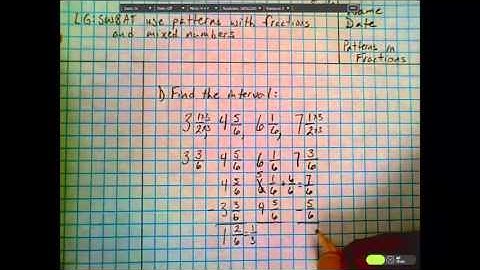 LG: SWBAT use patterns with fractions
and mixed numbers
Name
Date
Patterns in
Fractions
1) Find the interval:
3 1×3/2×3, 4 5/6, 6 1/6, 7 1×3/2×3
3 3/6 4 5/6 6 1/6 7 3/6
4 5/6 5 6 1/6 + 6/6 = 7/6
- 3 3/6 4 5/6 - 5/6
1 2/6 = 1/3